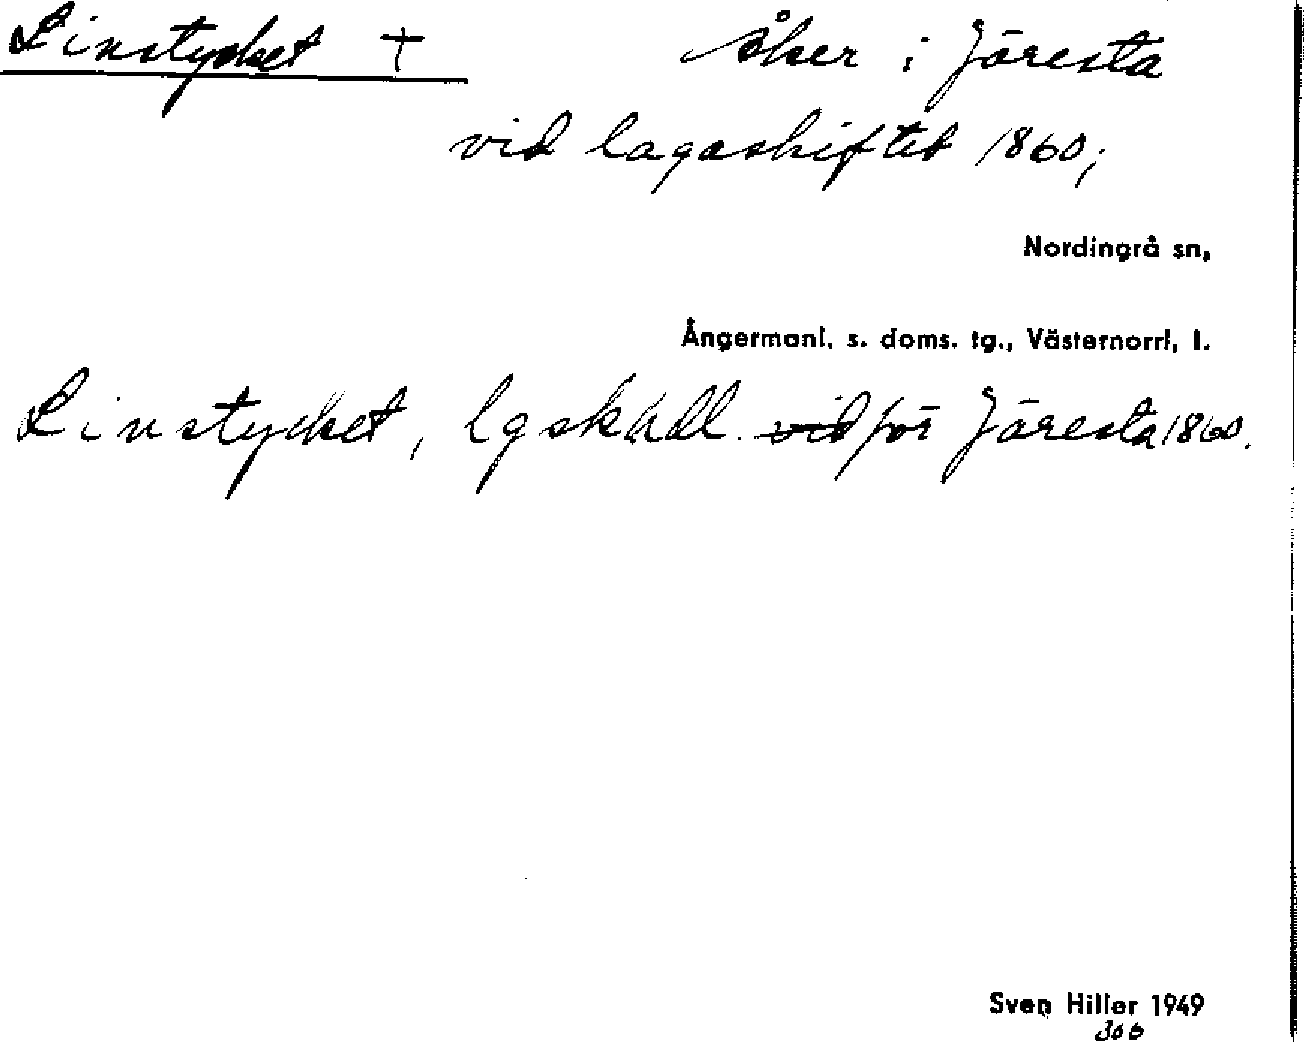 Linstycket + åker i Järesta
vid lagaskiftet 1860;
Nordingrå sn,
Ångermanl. s. doms. tg., Västernorrl, l.
Linstycket, lgskhdl. vid för Järesta 1860.
Sven Hiller 1949
366